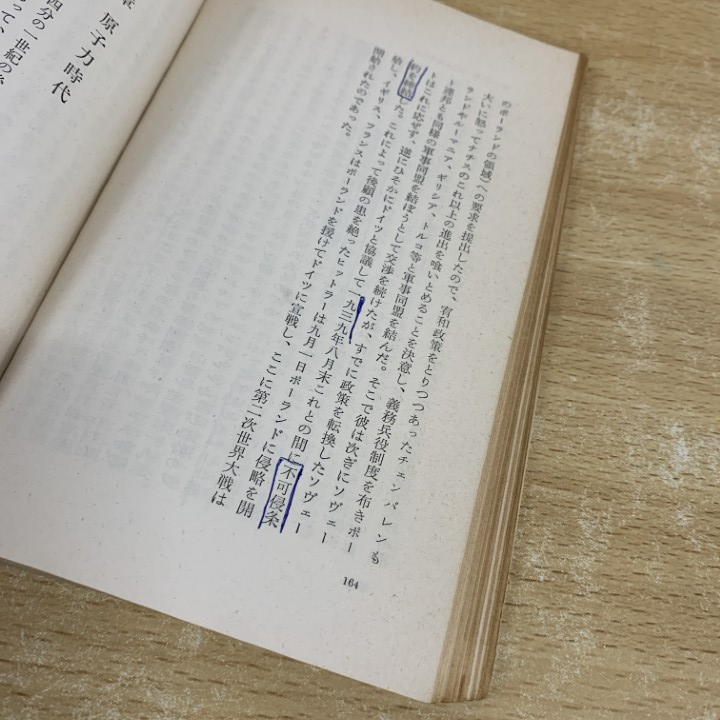 のポーランドの領域)への要求を提出したので、宥和政策をとりつつあったチェンバレンも
大いに怒ってナチスのこれ以上の進出を喰いとめることを決意し、義務兵役制度を布きポー
ランドやルーマニア、ギリシア、トルコ等と軍事同盟を結んだ。そこで彼は次ぎにソヴェー
ト連邦とも同様の軍事同盟を結ぼうとして交渉を続けたが、すでに政策を転換したソヴェー
トはこれに応ぜず、逆にひそかにドイツと協議して一九三九年八月末これとの間に不可侵条
約を締結した。これによって後顧の患を絶ったヒットラーは九月一日ポーランドに侵略を開
始し、イギリス、フランスはポーランドを援けてドイツに宣戦し、ここに第二次世界大戦は
開始されたのであった。
164
原子力時代
四分の一世紀の
って、